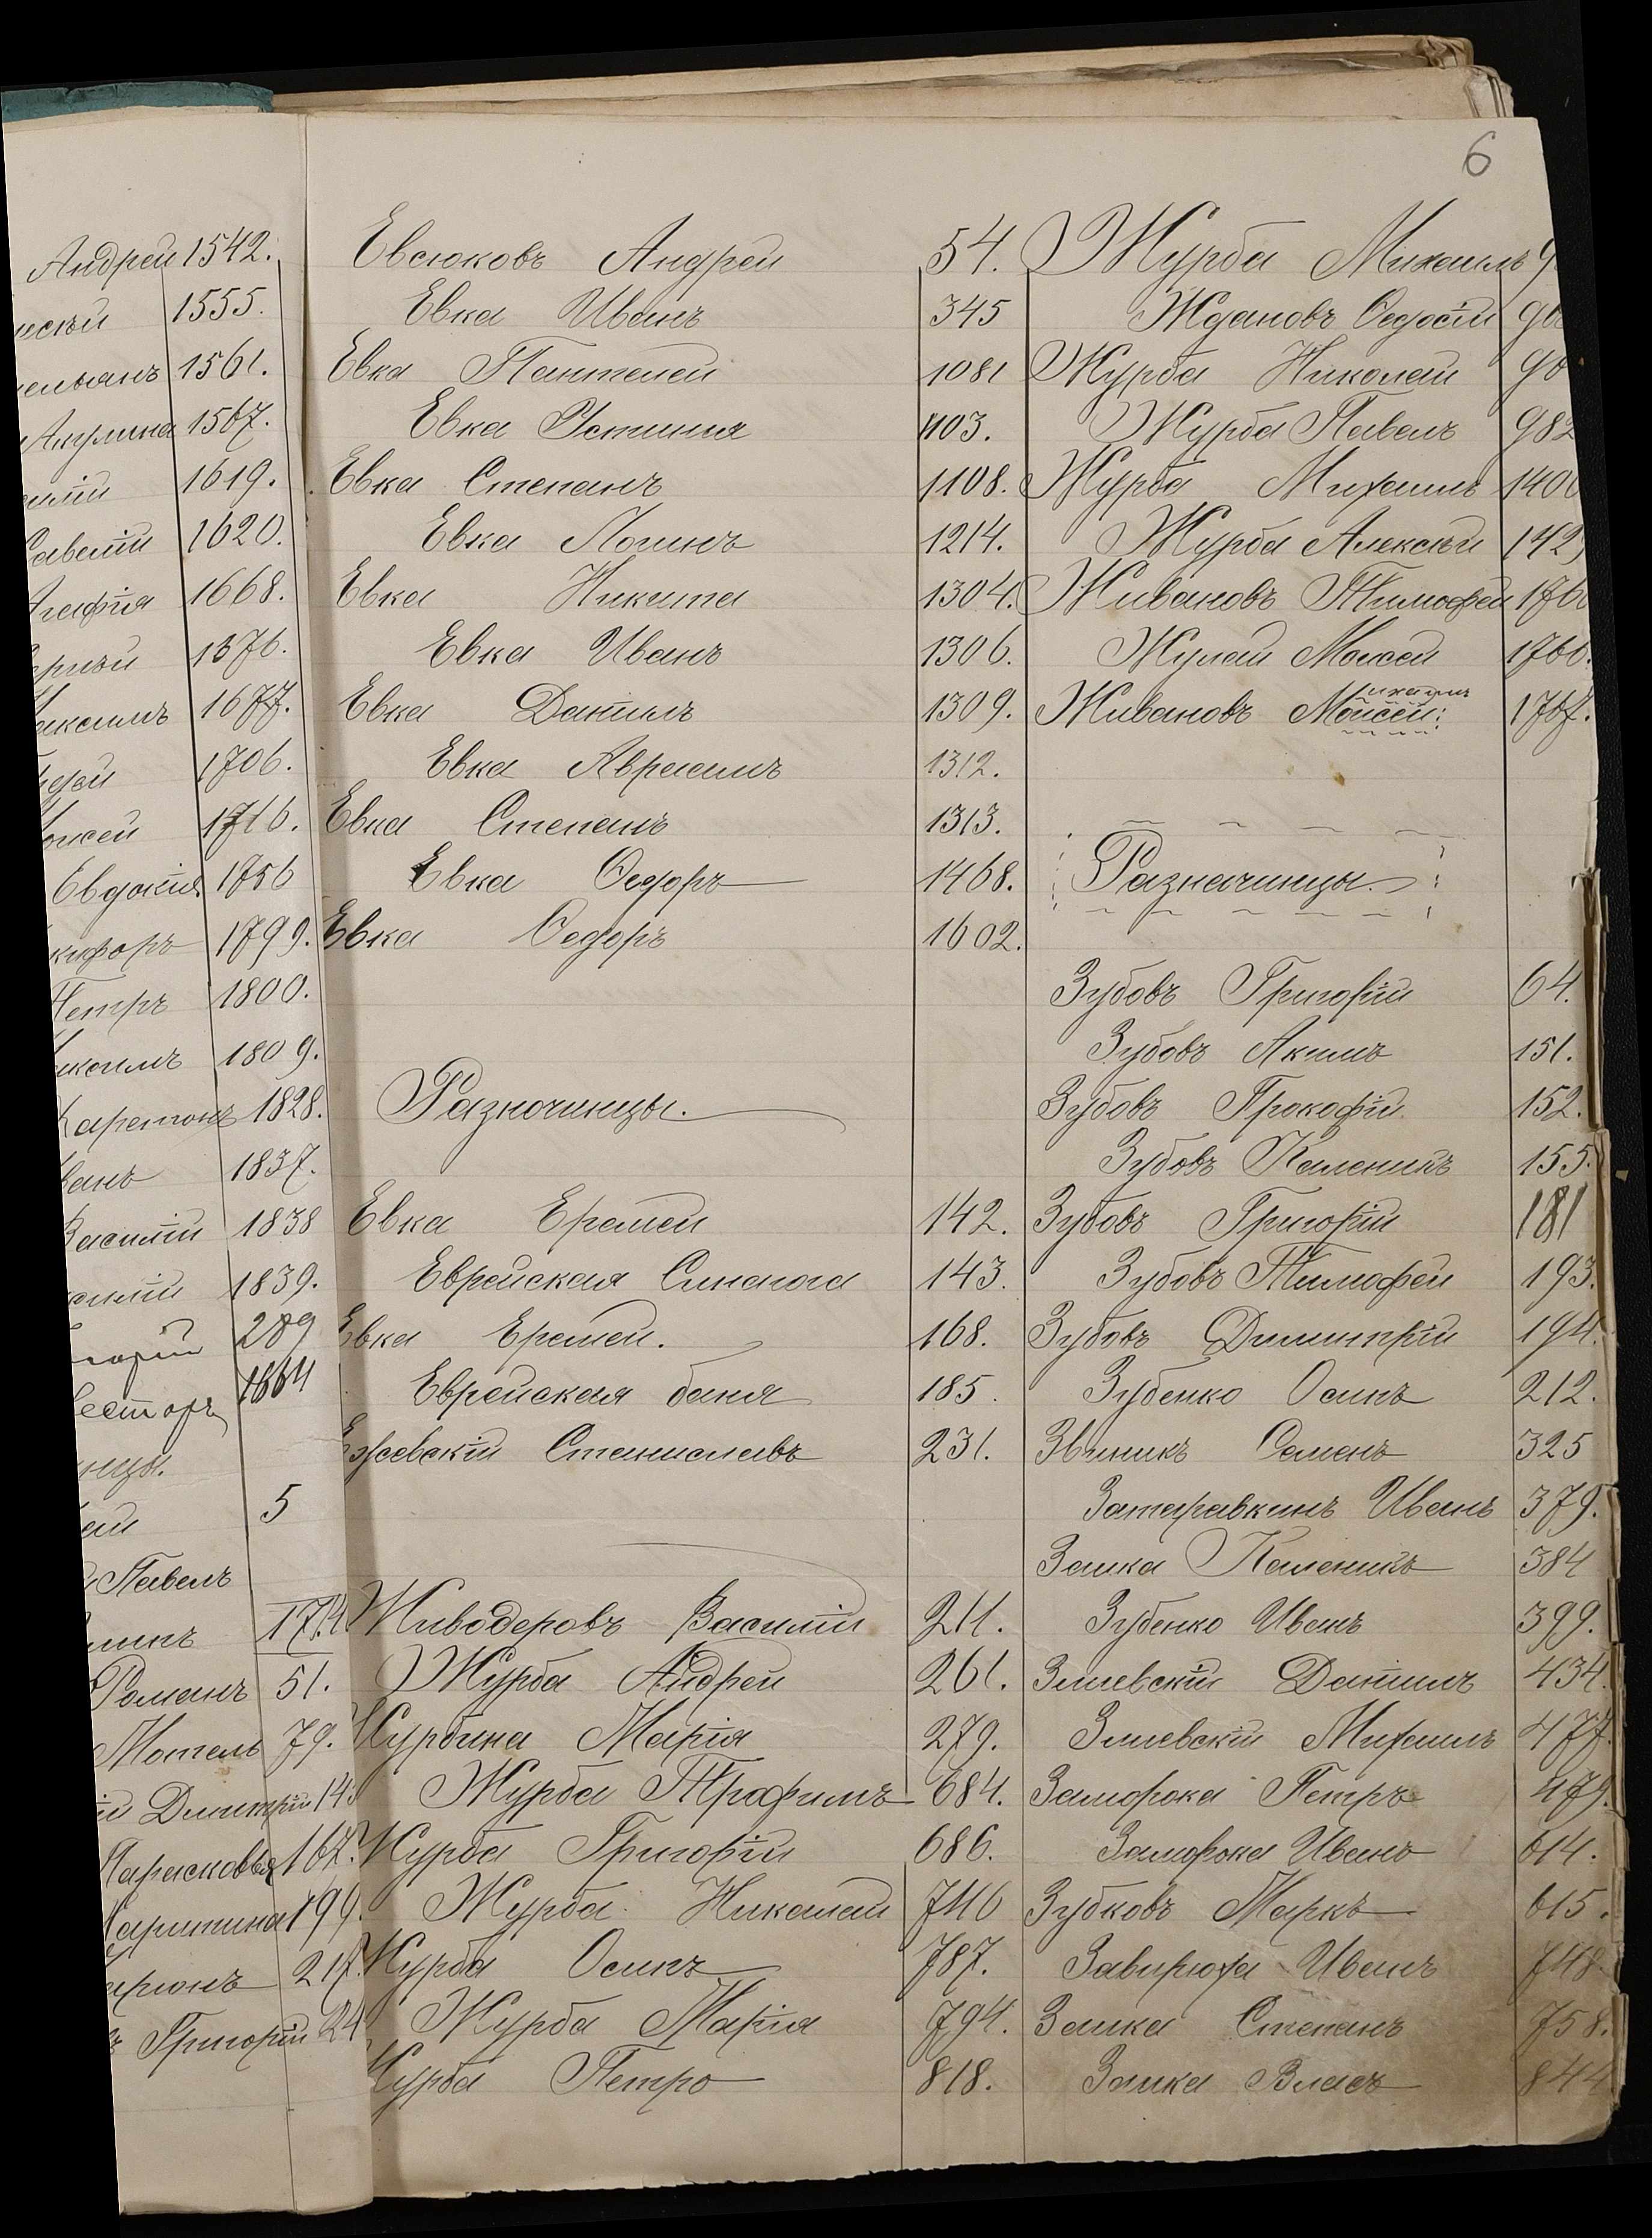 6
Андрей 1542.
1555.
1561.
Акулина 1567.
1619.
1620.
1668.
1676.
1677.
1706.
1716.
Евдокия 1756
1799.
Петръ 1800.
1809.
1828.
1837.
Василій 1838
1839.
289
1864
5
Павелъ
174
Романъ 51.
Мотель 79.
Дмитрій 14
Парасковья 162.
199.
217.
Григорій 24
Евсюковъ Андрей 54.
Евка Иванъ 345
Евка Пантелей 1081
Евка Устинія 1103.
Евка Степанъ 1108.
Евка Логинъ 1214.
Евка Никита 1304.
Евка Иванъ 1306.
Евка Даніилъ 1309.
Евка Авраамъ 1312.
Евка Степанъ 1313.
Евка Ѳедоръ 1468.
Евка Ѳедоръ 1602.
Разночинцы.
Евка Еремей 142.
Еврейская Синагога 143.
Евка Еремей. 168.
Еврейская баня 185.
Ежевскій Станиславъ 231.
Живодеровъ Василій 211.
Журба Андрей 261.
Журбина Марія 279.
Журба Трофимъ 684.
Журба Григорій 686.
Журба Николай 746
Журба Осипъ 787.
Журба Марія 794.
Журба Петро 818.
Журба Михаилъ 9
Ждановъ Ѳедосій
Журба Николай
Журба Павелъ 982
Журба Михаилъ 140
Журба Алексѣй 142
Живановъ Тимофей 176
Жулай Моисей 1766.
Живановъ Моисей: Михаилъ 1767.
Разначинцы.
Зубовъ Григорій 64.
Зубовъ Акимъ 151.
Зубовъ Прокофій 152.
Зубовъ Каленикъ 155.
Зубовъ Григорій 181
Зубовъ Тимофей 193.
Зубовъ Димитрій 194.
Зубенко Осипъ 212.
Звиникъ Семенъ 325
Затаравкинъ Иванъ 379.
Заика Каленикъ 384
Зубенко Иванъ 399.
Змиевскій Даніилъ 434.
Змиевскій Михаилъ 477.
Заморока Петръ 479.
Заморока Иванъ 614.
Зубковъ Маркъ 615.
Завирюха Иванъ 748.
Заика Степанъ 758.
Заика Власъ 844